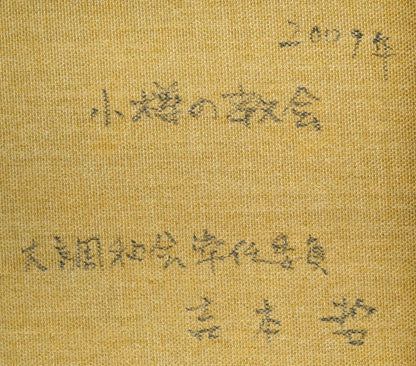 2009年
小樽の教会
大調和会常任委員
吉本 哲